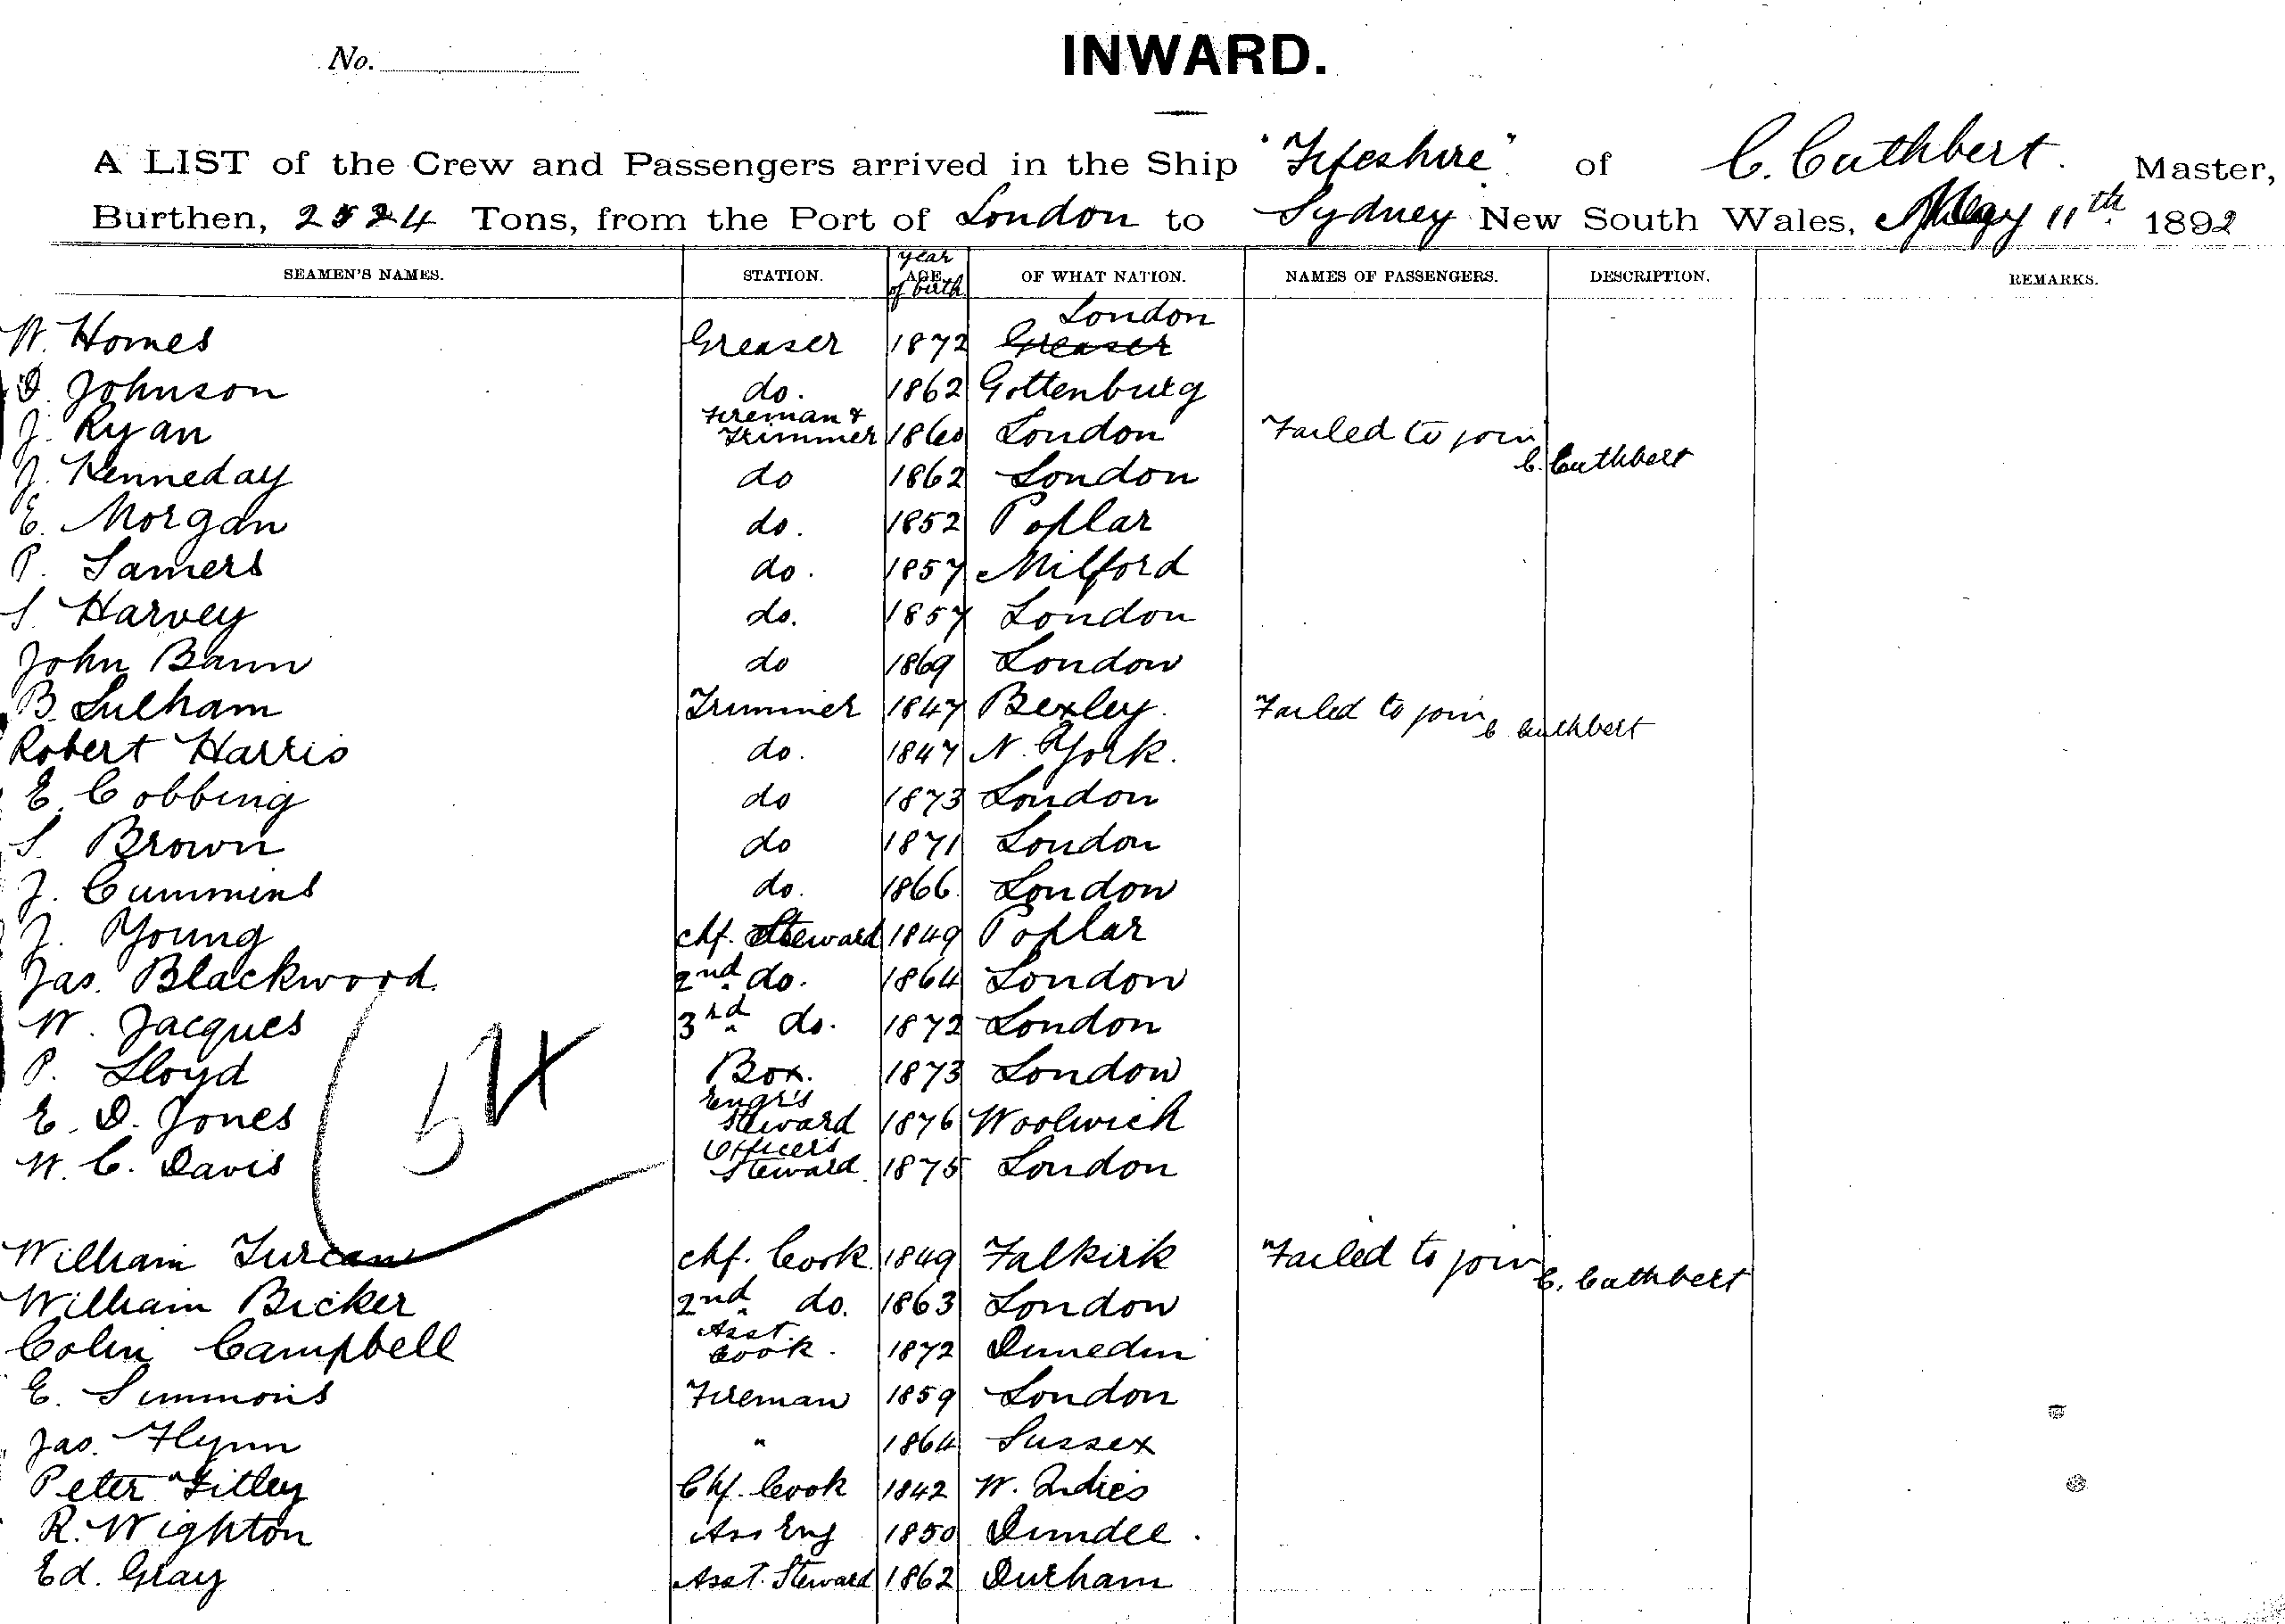 No.
INWARD.
A LIST of the Crew and Passengers arrived in the Ship "Fifeshire" of C. Cuthbert. Master,
Burthen, 2524 Tons, from the Port of London to Sydney New South Wales, May 11th 1892
SEAMEN'S NAMES. STATION. year AGE of birth OF WHAT NATION. NAMES OF PASSENGERS. DESCRIPTION. REMARKS.
London
W. Homes Greaser 1872 Greaser
D. Johnson do. 1862 Gottenburg
J. Ryan Fireman & Trimmer 1860 London Failed to join C. Cuthbert
J. Kenneday do 1862 London
E. Morgan do. 1852 Poplar
P. Samers do. 1857 Milford
S. Harvey do. 1857 London
John Bann do 1869 London
B. Lulham Trimmer 1847 Bexley. Failed to join C Cuthbert
Robert Harris do. 1847 N. York.
E. Cobbing do 1873 London
S. Brown do 1871 London
J. Cummins do. 1866 London
J. Young chf. Steward 1849 Poplar
Jas. Blackwood 2nd do. 1864 London
W. Jacques 3rd do. 1872 London
P. Lloyd Box. 1873 London
E. D. Jones Engr's Steward 1876 Woolwich
W. C. Davis Officers Steward 1875 London
54
William Turcan chf. Cook 1849 Falkirk Failed to join C. Cuthbert
William Bicker 2nd do. 1863 London
Colin Campbell Asst. Cook. 1872 Dunedin
E. Simmons Fireman 1859 London
Jas. Flynn " 1864 Sussex
Peter Titley Chf. Cook 1842 W. Indies
R. Wighton Ass Eng 1850 Dundee.
Ed. Gray Asst. Steward 1862 Durham